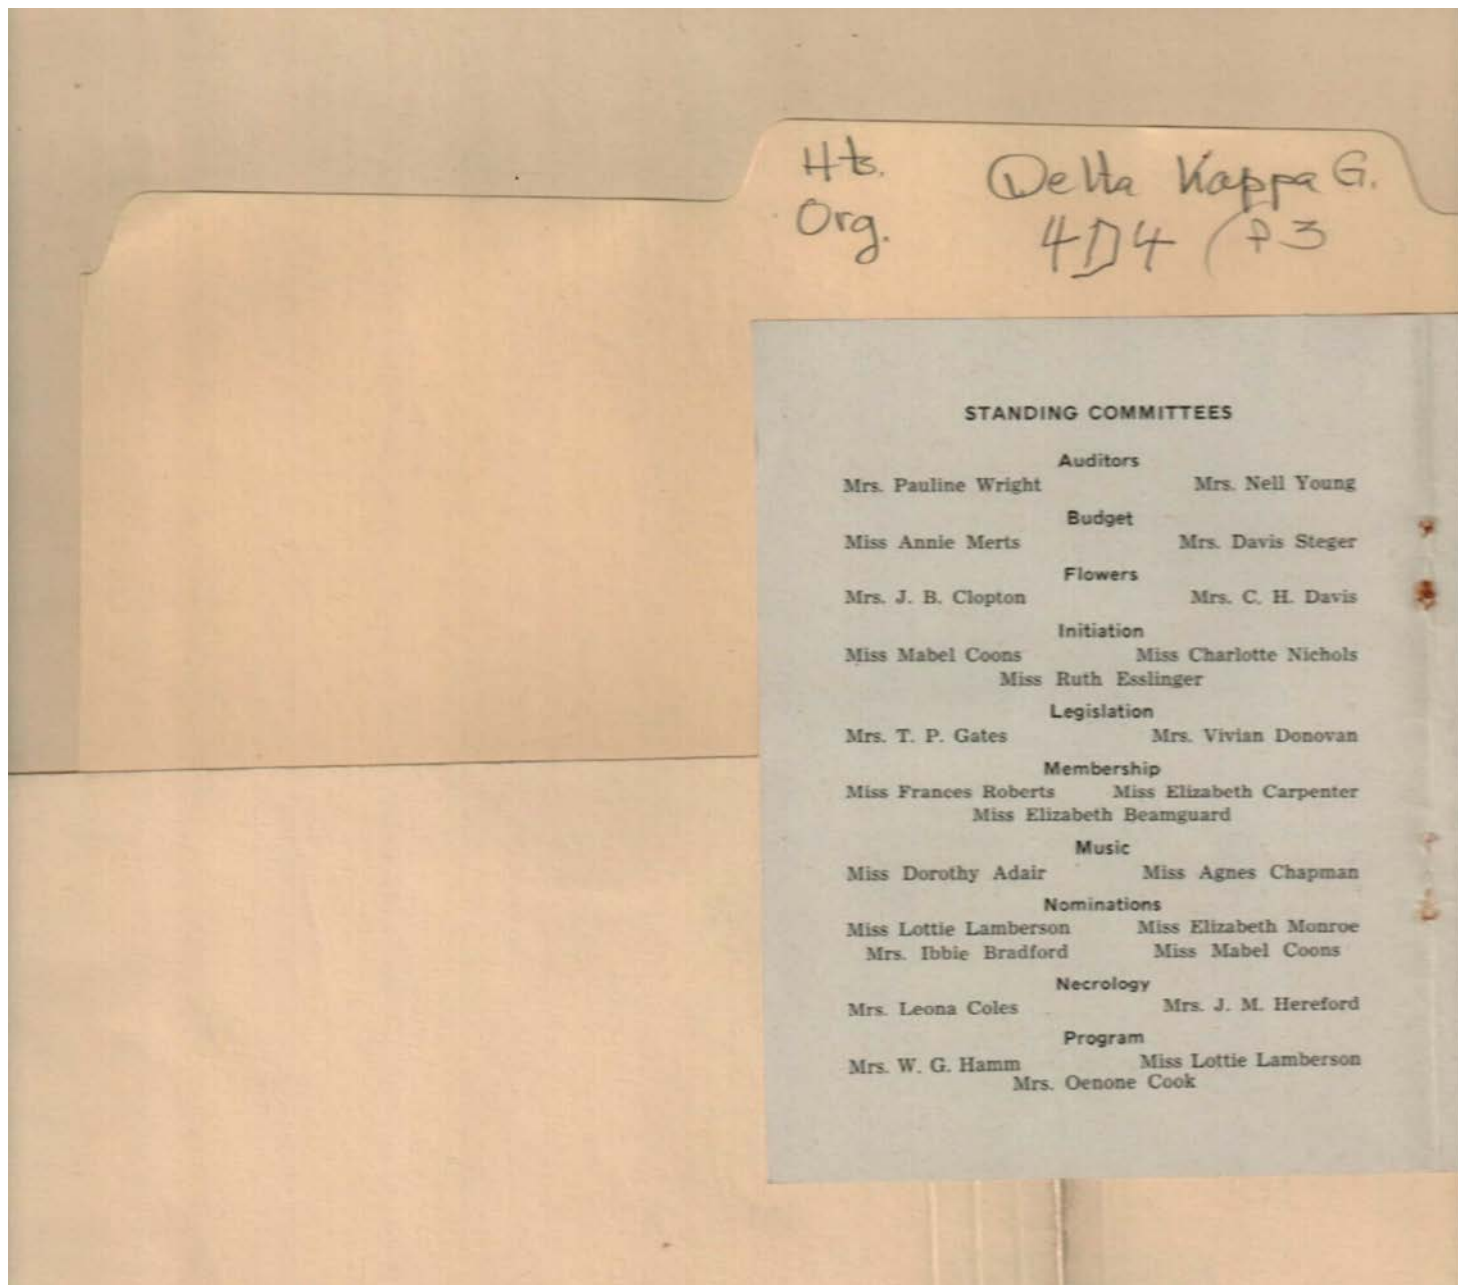 Hts. Delta Kappa G.
Org. 4D4 (f3
STANDING COMMITTEES
Auditors
Mrs. Pauline Wright Mrs. Nell Young
Budget
Miss Annie Merts Mrs. Davis Steger
Flowers
Mrs. J. B. Clopton Mrs. C. H. Davis
Initiation
Miss Mabel Coons Miss Charlotte Nichols
Miss Ruth Esslinger
Legislation
Mrs. T. P. Gates Mrs. Vivian Donovan
Membership
Miss Frances Roberts Miss Elizabeth Carpenter
Miss Elizabeth Beamguard
Music
Miss Dorothy Adair Miss Agnes Chapman
Nominations
Miss Lottie Lamberson Miss Elizabeth Monroe
Mrs. Ibbie Bradford Miss Mabel Coons
Necrology
Mrs. Leona Coles Mrs. J. M. Hereford
Program
Mrs. W. G. Hamm Miss Lottie Lamberson
Mrs. Oenone Cook